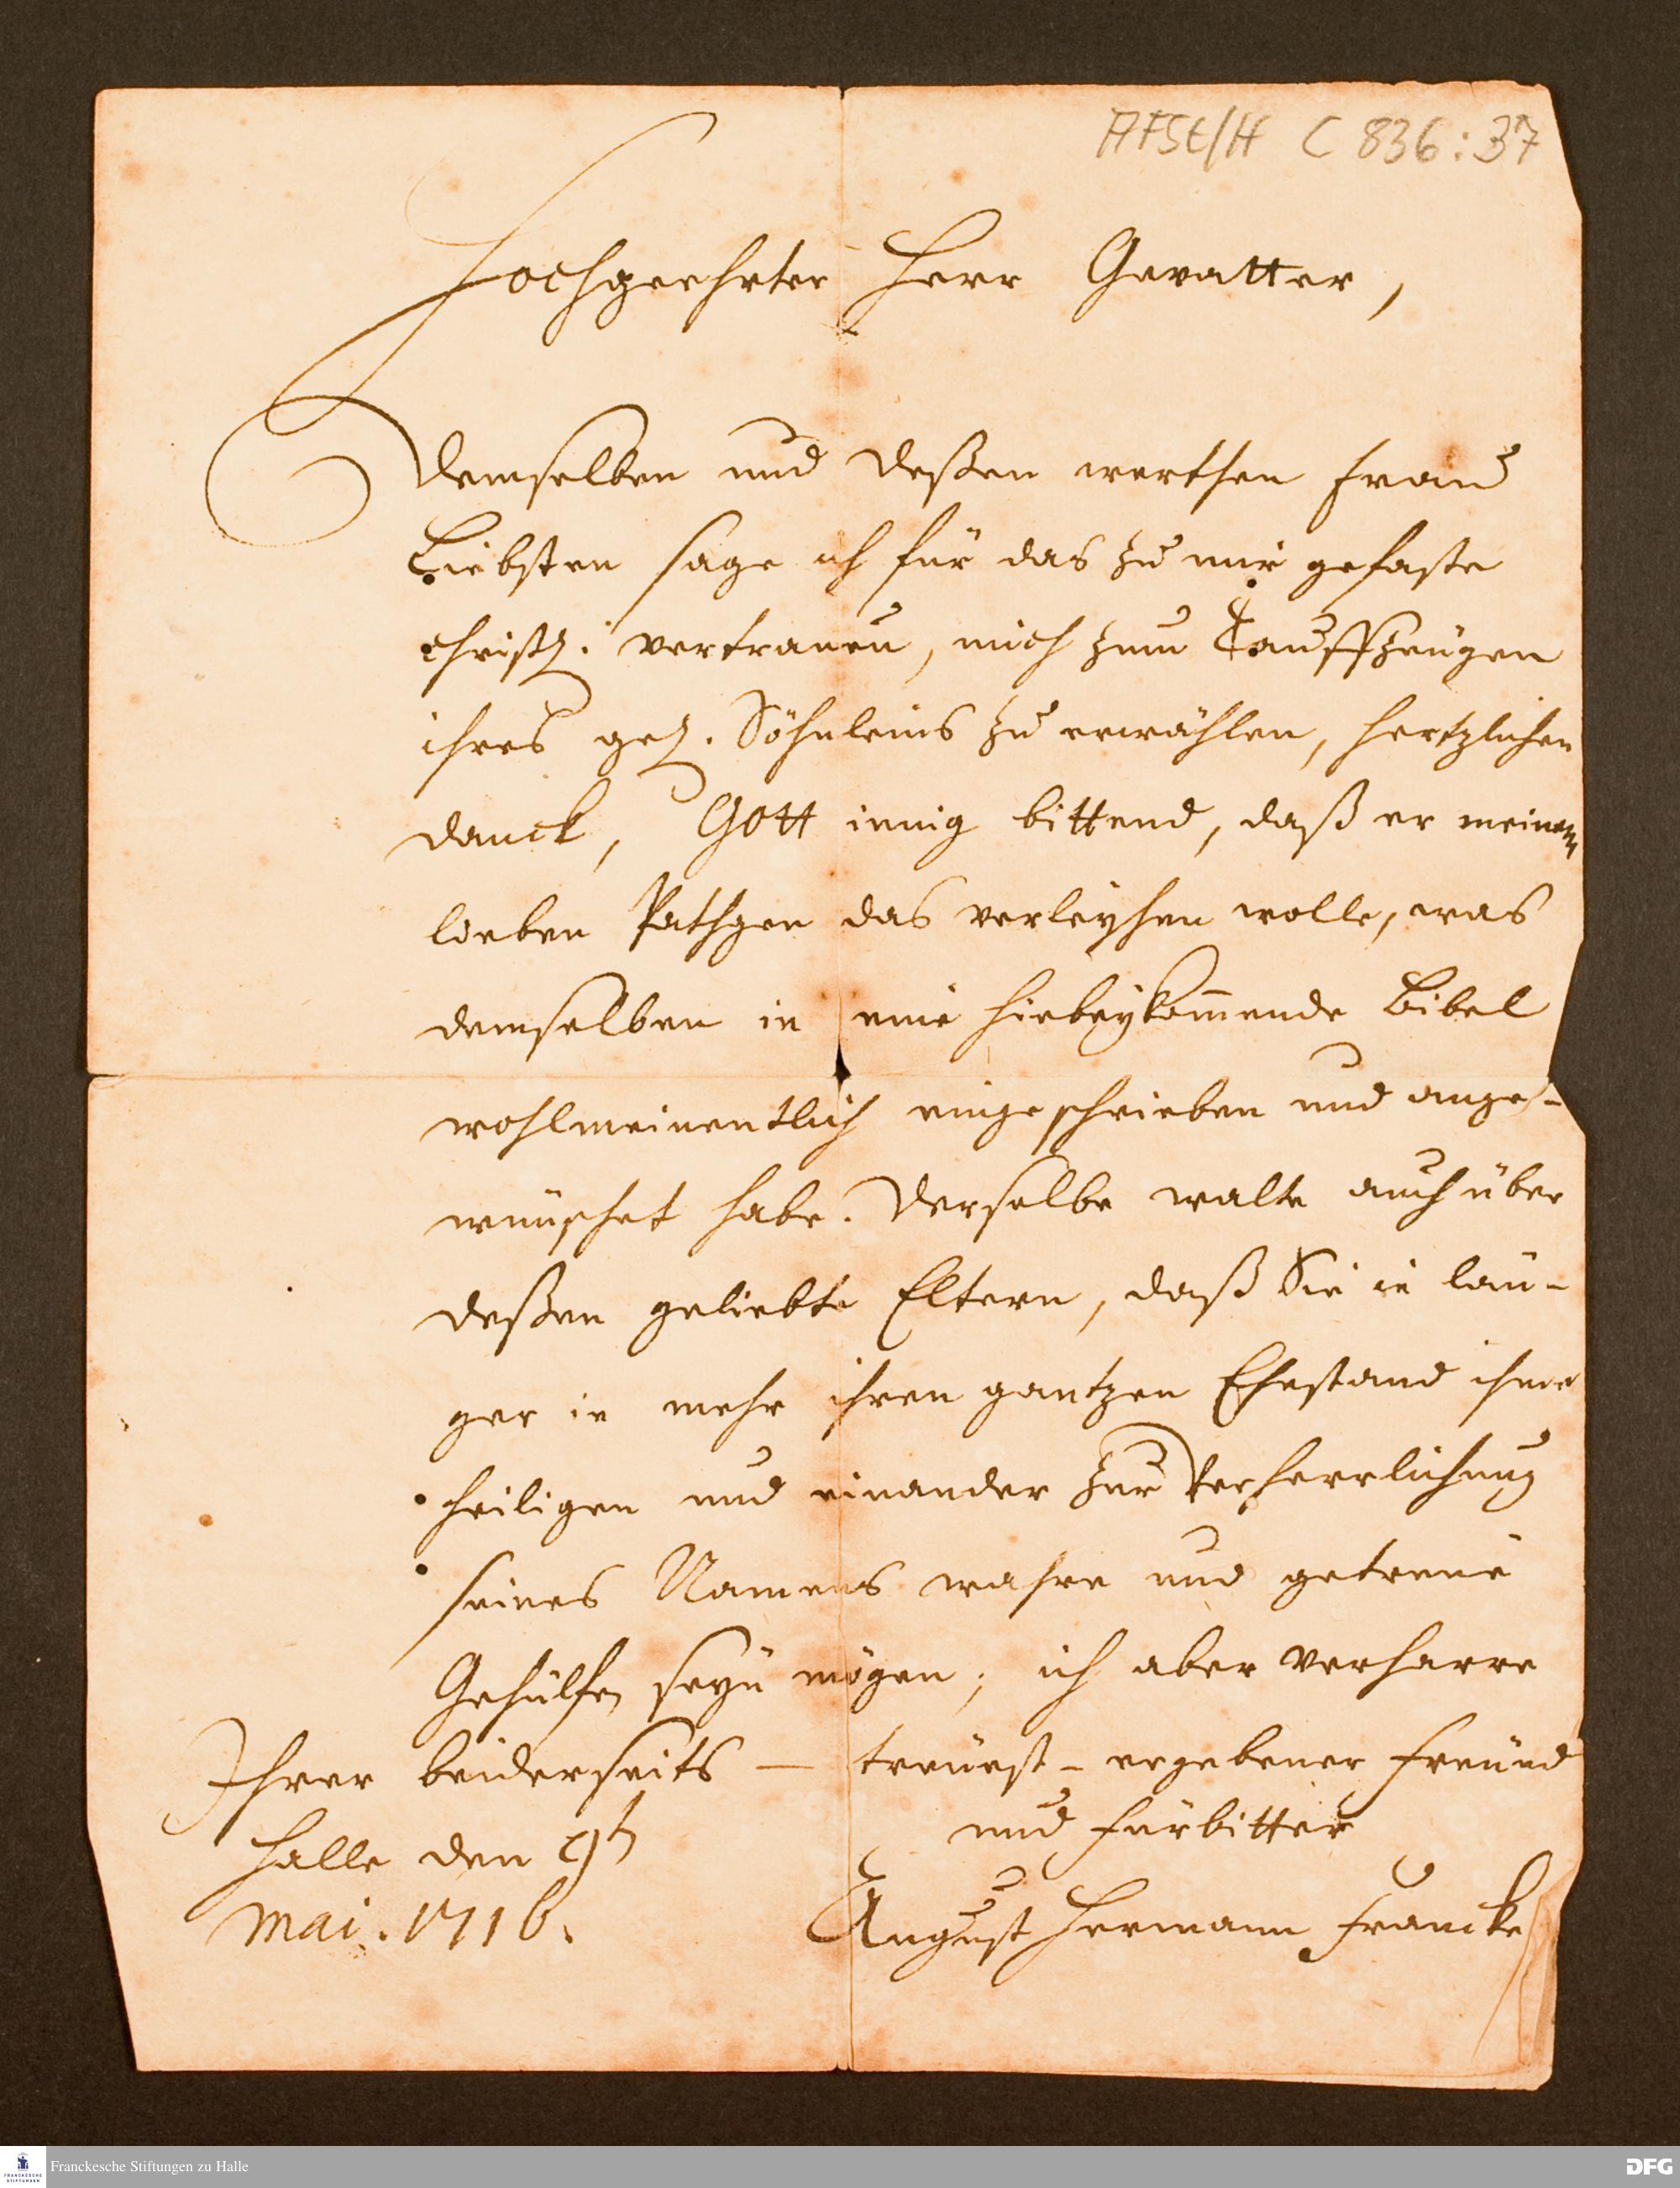 AFSt/H C 836:37
Hochgeehrter Herr Gevatter,
Demselben und deßen werthen Frau
Liebsten sage ich für das zu mir gefaste
christl. vertrauen, mich zum Tauffzeugen
ihres gel. Söhnleins zu erwählen, hertzlichen
danck, Gott innig bittend, daß er meinem
lieben Pathgen das verleyhen wolle, was
demselben in eine hiebeykom̄ende Bibel
wohlmeinentlich eingeschrieben und ange-
wünschet habe. Derselbe walte auch über
deßen geliebte Eltern, daß Sie ie län-
ger ie mehr ihren gantzen Ehestand ihme
heiligen und einander zur Verherrlichung
seines Namens wahre und getreue
Gehülfen seyn mögen; ich aber verharre
Ihrer beiderseits — treuest-ergebener Freund
und Fürbitter
Halle den
Mai. 1716.
August Hermann Francke
Franckesche Stiftungen zu Halle
FRANCKESCHE STIFTUNGEN
DFG